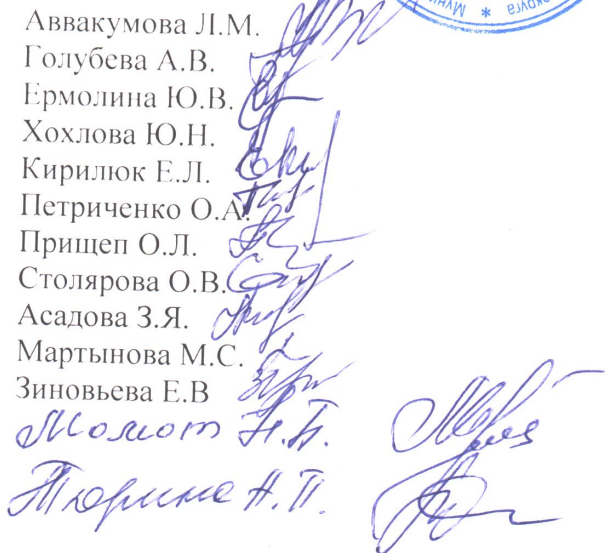 Аввакумова Л.М.
Голубева А.В.
Ермолина Ю.В.
Хохлова Ю.Н.
Кирилюк Е.Л.
Петриченко О.А.
Прищеп О.Л.
Столярова О.В.
Асадова З.Я.
Мартынова М.С.
Зиновьева Е.В
Момот Н.Б.
Тюрина Н.П.